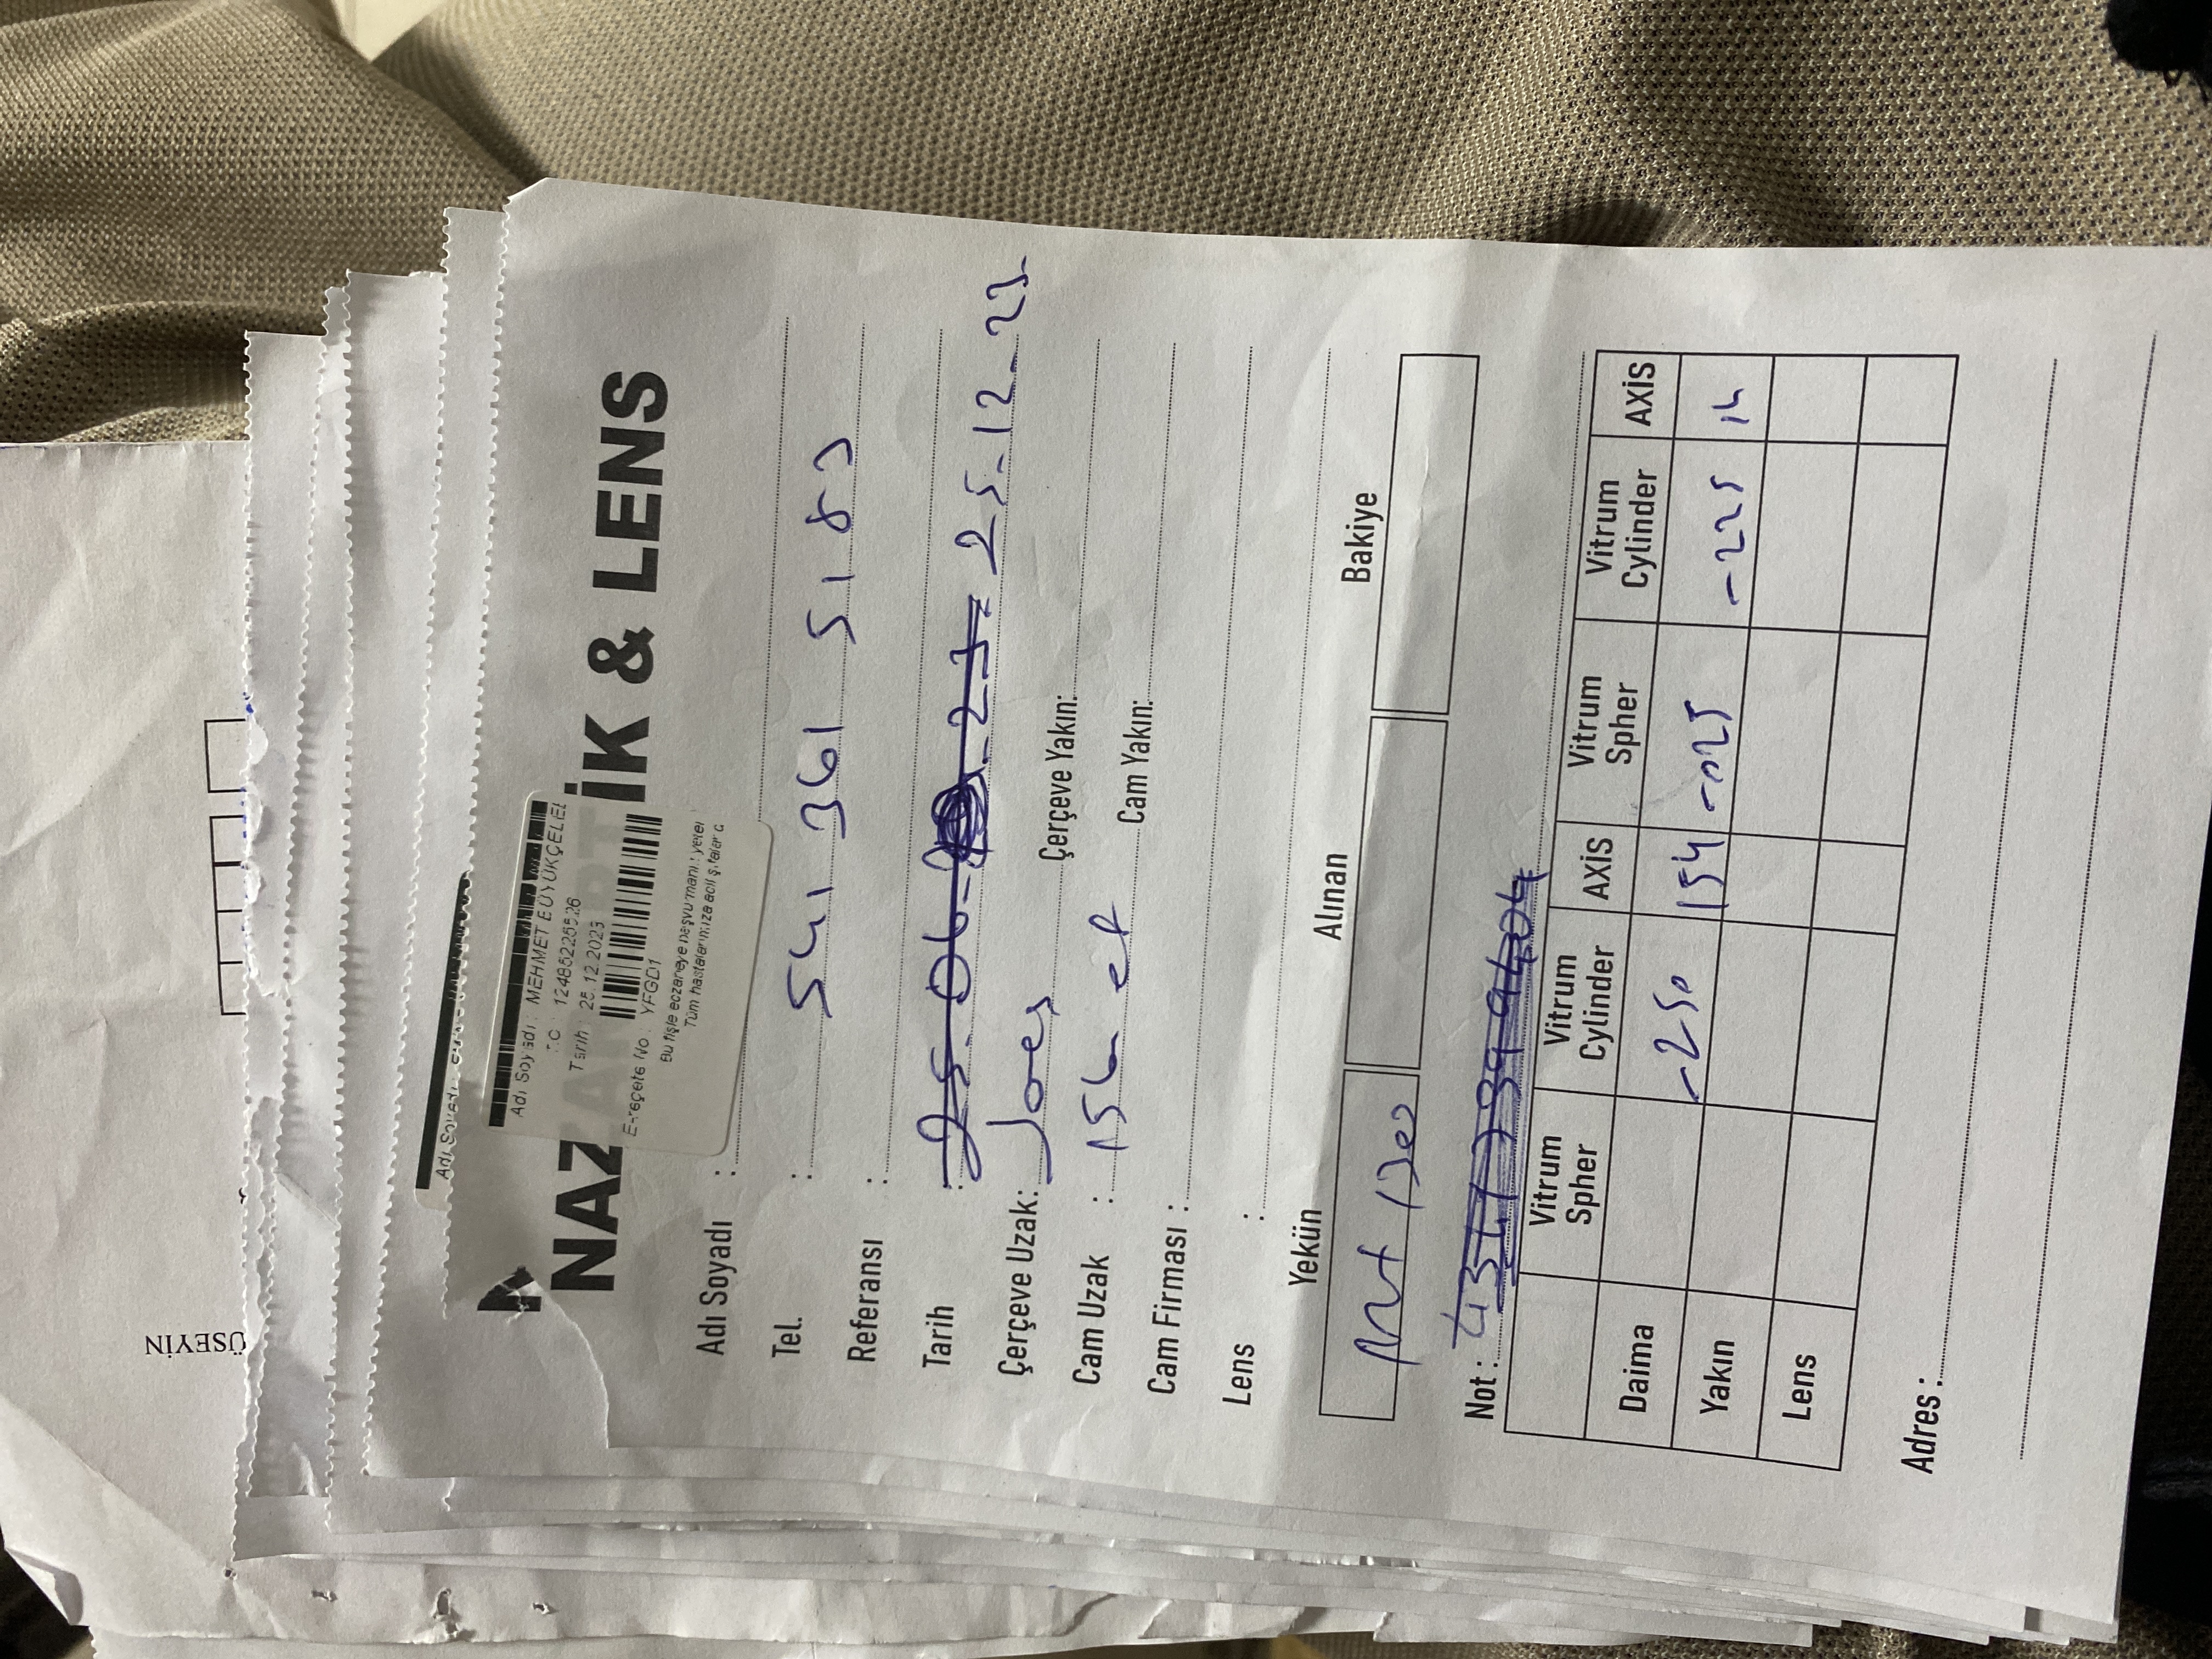 ÜSEYİN
Adı Soyadı
NAZ İK & LENS
Adı Soyadı : MEHMET BÜYÜKÇELEB
T.C : 12485225526
Tarih : 25.12.2023
E-reçete No : YFGD1
Bu fişle eczaneye başvurmanız yeter
Tüm hastalarımıza acil şifalar d
Adı Soyadı :
Tel. : 541 361 5183
Referansı :
Tarih : 25.06. 23 25-12-23
Çerçeve Uzak: Joes Çerçeve Yakın:
Cam Uzak : 156 Cam Yakın:
Cam Firması :
Lens :
Yekün Alınan Bakiye
1300
Not :
Vitrum Spher Vitrum Cylinder AXİS Vitrum Spher Vitrum Cylinder AXİS
Daima -250 154 -025 -225 14
Yakın
Lens
Adres :